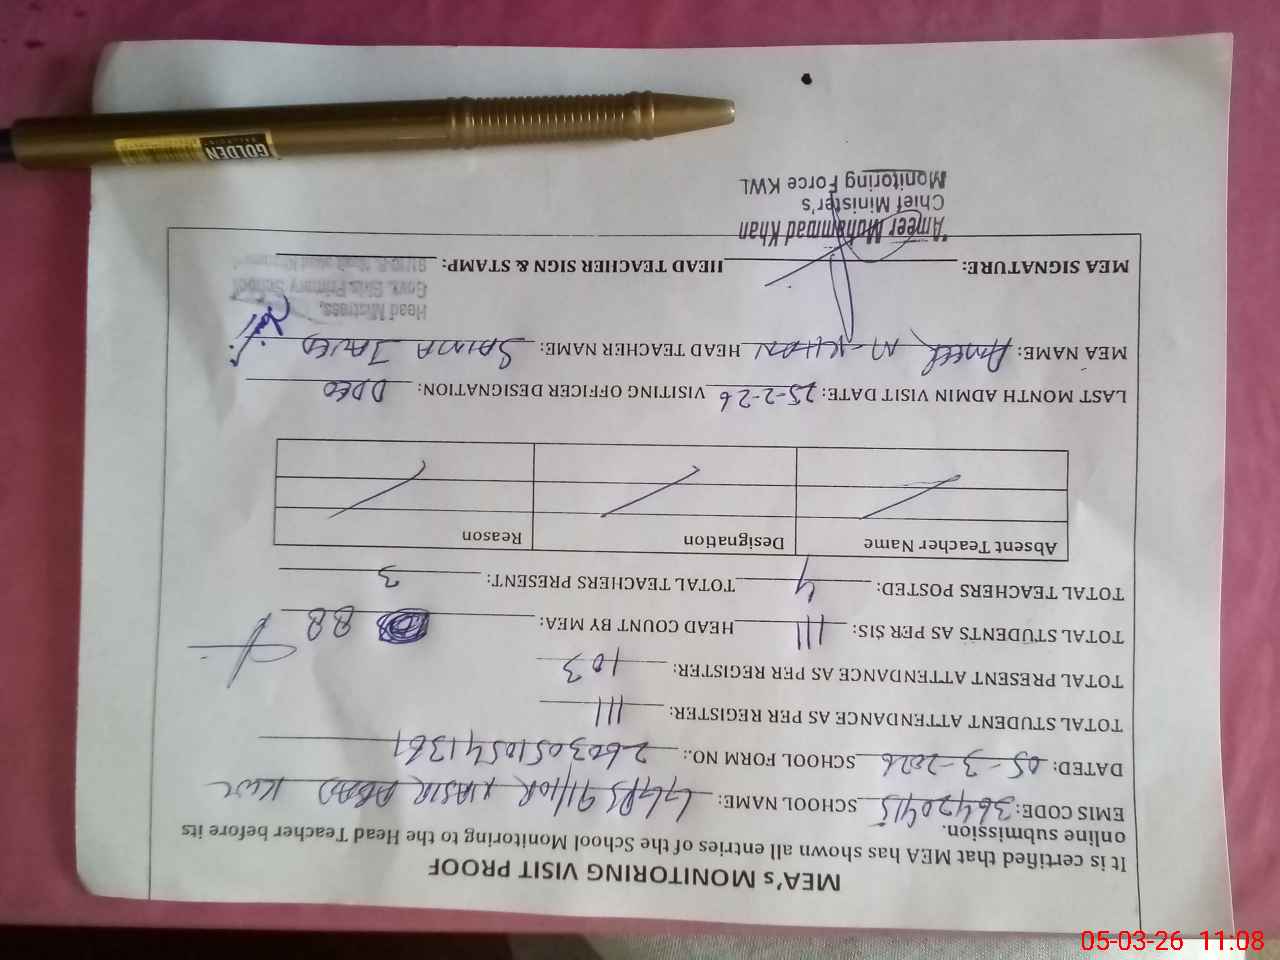 MEA's MONITORING VISIT PROOF
It is certified that MEA has shown all entries of the School Monitoring to the Head Teacher before its
online submission.
EMIS CODE: 36420415 SCHOOL NAME: GGPS 91/10R NASIR ABAD KWL
DATED: 05-3-2026 SCHOOL FORM NO.: 26030510541361
TOTAL STUDENT ATTENDANCE AS PER REGISTER: 111
TOTAL PRESENT ATTENDANCE AS PER REGISTER: 103
TOTAL STUDENTS AS PER SIS: 111 HEAD COUNT BY MEA: 88
TOTAL TEACHERS POSTED: 4 TOTAL TEACHERS PRESENT: 3
Absent Teacher Name Designation Reason
LAST MONTH ADMIN VISIT DATE: 25-2-26 VISITING OFFICER DESIGNATION: DDEO
MEA NAME: AMEER M-KHAN HEAD TEACHER NAME: SAIMA JAVED
MEA SIGNATURE: HEAD TEACHER SIGN & STAMP:
Ameer Mohammad Khan
Chief Minister's
Monitoring Force KWL
Head Mistress,
Govt. Girls Primary School
GOLDEN
05-03-26 11:08